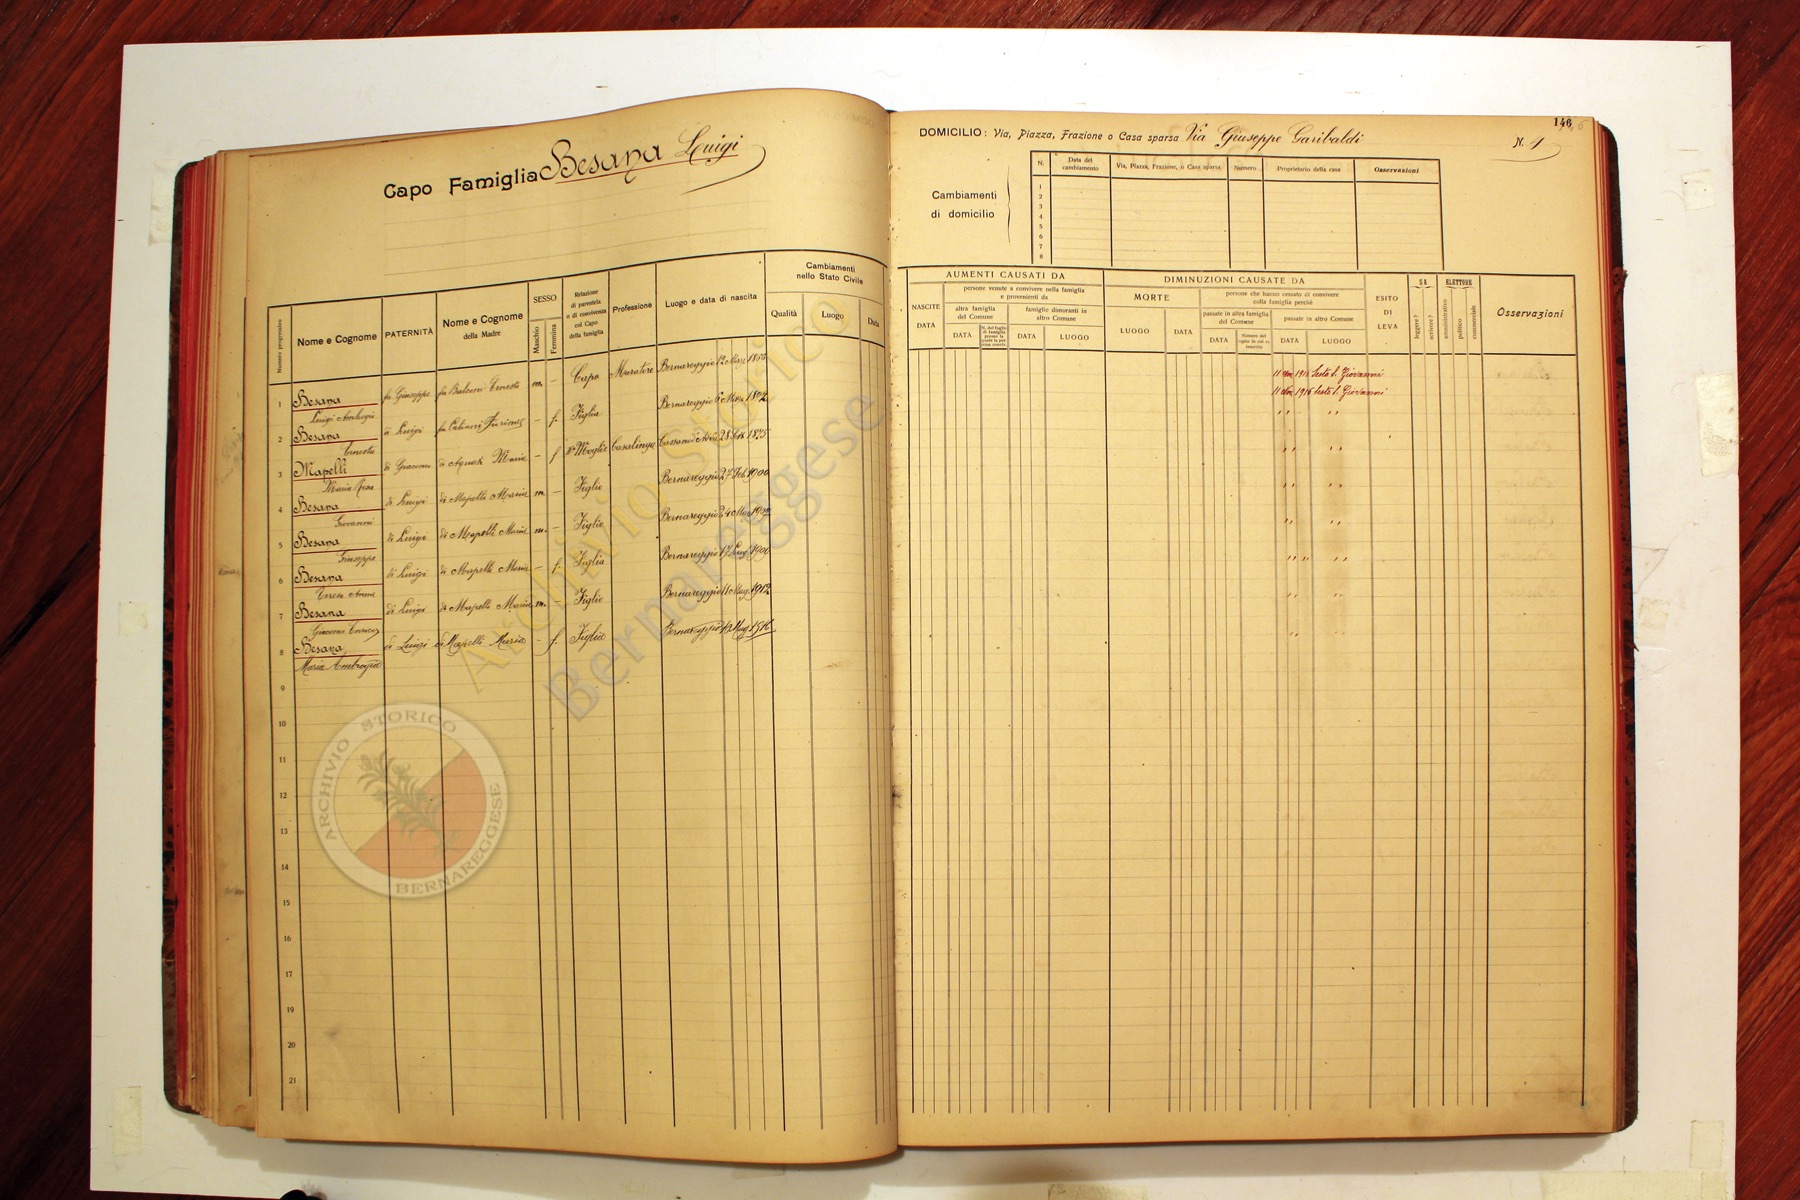 Capo Famiglia Besana Luigi
Nome e Cognome
PATERNITÀ
Nome e Cognome
della Madre
SESSO
Maschio
Femmina
Relazione
di parentela
o di convivenza
col Capo
della famiglia
Professione
Luogo e data di nascita
Cambiamenti
nello Stato Civile
Qualità
Luogo
Data
1 Besana fu Giuseppe fu Balconi Ernesta m. – Capo Muratore Bernareggio
Luigi Ambrogio
2 Besana di Luigi – f. Figlia Bernareggio
Ernesta
3 Mapelli di Giacomo Maria – f Moglie Casalinga
Maria Rosa
4 Besana di Luigi di Mapelli Maria m. – Figlio Bernareggio 27 Feb. 1900
Giovanni
5 Besana di Luigi di Mapelli Maria m. – Figlio Bernareggio
Giuseppe
6 Besana di Luigi di Mapelli Maria – f. Figlia Bernareggio
Teresa
7 Besana di Luigi di Mapelli Maria m. – Figlio Bernareggio 1912
Giacomo Enrico
8 Besana di Luigi di Mapelli Maria – f. Figlia Bernareggio 1916
Maria Ambrogia
9
10
11
12
13
14
15
16
17
18
19
20
21
146
DOMICILIO: Via, Piazza, Frazione o Casa sparsa Via Giuseppe Garibaldi N. 1
Cambiamenti
di domicilio
N.
Data del
cambiamento
Via, Piazza, Frazione, o Casa sparsa
Numero
Proprietario della casa
Osservazioni
1
2
3
4
5
6
7
8
AUMENTI CAUSATI DA
NASCITE
DATA
persone venute a convivere nella famiglia
e provenienti da
altra famiglia
del Comune
DATA
famiglie dimoranti in
altro Comune
DATA
LUOGO
DIMINUZIONI CAUSATE DA
MORTE
LUOGO
DATA
persone che hanno cessato di convivere
colla famiglia perchè
passate in altra famiglia
del Comune
DATA
passate in altro Comune
DATA
LUOGO
ESITO
DI
LEVA
SA
leggere?
scrivere?
ELETTORE
amministrativo
politico
commerciale
Osservazioni
1916 Sesto S. Giovanni
1916 Sesto S. Giovanni
Archivio Storico
Bernareggese
ARCHIVIO STORICO
BERNAREGGESE